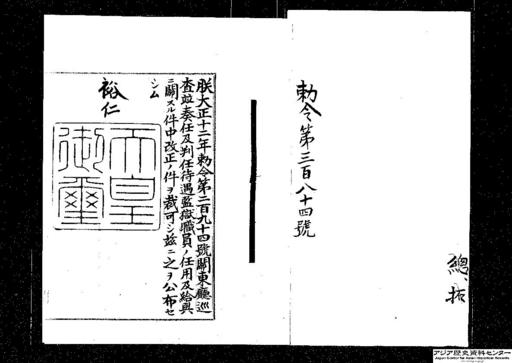 勅令第三百八十四號
總、拓
朕大正十二年勅令第二百九十四號關東廳巡
査竝奏任及判任待遇監獄職員ノ任用及給與
ニ關スル件中改正ノ件ヲ裁可シ玆ニ之ヲ公布セ
シム
裕仁
天皇
御璽
アジア歴史資料センター
Japan Center for Asian Historical Records